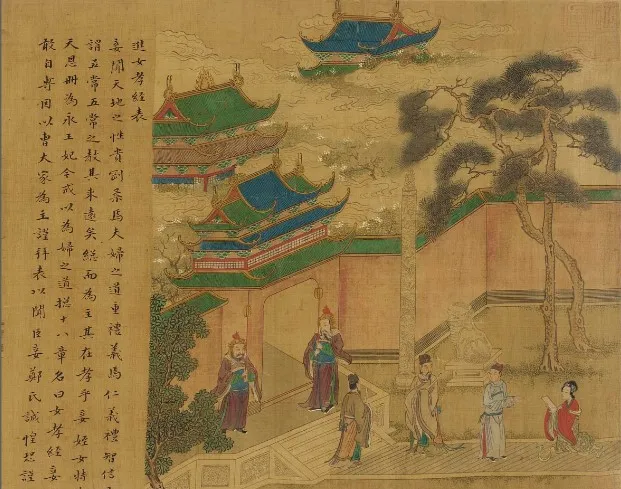 進女孝經表
妾聞天地之性貴剛柔焉夫婦之道重禮義焉仁義禮智信
謂五常五常之教其來遠矣總而為主其在孝乎妾姪女特
天恩冊為永王妃今戒以為婦之道 十八章名曰女孝經妾
敢自專因以曹大家為主謹拜表以聞臣妾鄭氏誠惶恐謹